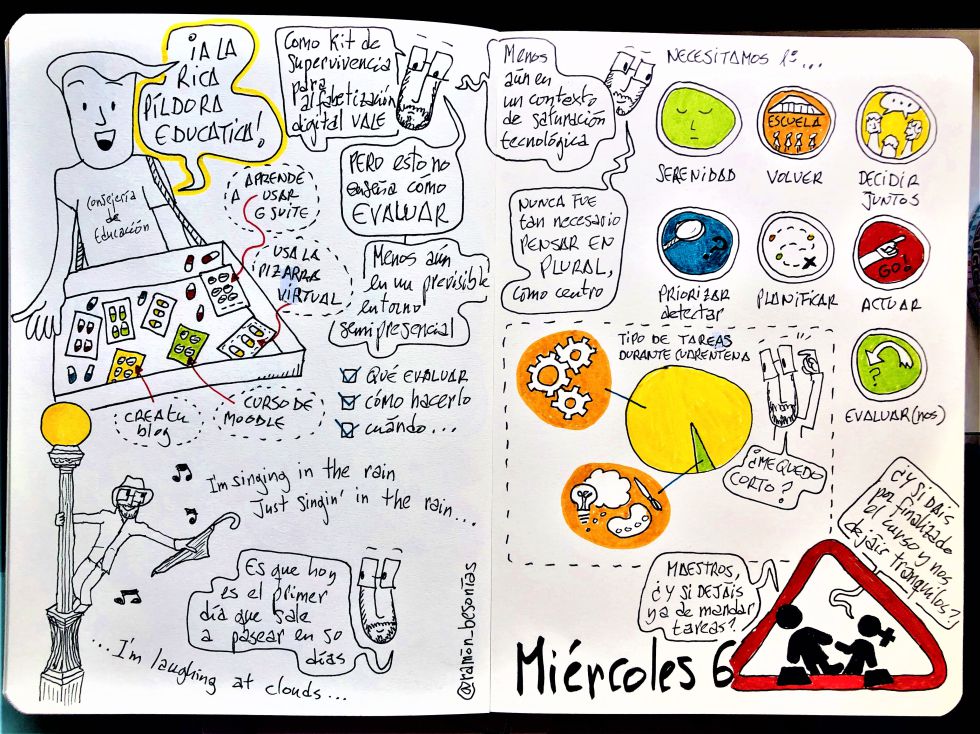 ¡A LA
RICA
PÍLDORA
EDUCATICA!
Consejería
de
Educación
Como kit de
supervivencia
para
alfabetización
digital VALE
PERO esto no
enseña cómo
EVALUAR
Menos aún
en un previsible
entorno
semipresencial
APRENDE
A USAR
G SUITE
USA LA
PIZARRA
VIRTUAL
CREA TU
blog
CURSO DE
MOODLE
QUÉ EVALUAR
cómo hacerlo
cuándo...
I'm singing in the rain
Just singin' in the rain...
Es que hoy
es el primer
día que sale
a pasear en 50
días
...I'm laughing at clouds...
@ramón_besonías
Menos
aún en
un contexto
de saturación
tecnológica
NUNCA FUE
tan necesario
PENSAR EN
PLURAL,
como centro
NECESITAMOS 1º...
SERENIDAD
ESCUELA
VOLVER
DECIDIR
JUNTOS
?
PRIORIZAR
detectar
x
PLANIFICAR
GO!
ACTUAR
?
EVALUAR(nos)
TIPO DE TAREAS
DURANTE CUARENTENA
¿ME QUEDO
CORTO?
MAESTROS,
¿Y SI DEJÁIS
YA DE MANDAR
TAREAS?
¿Y SI DAIS
por finalizado
el curso y nos
dejáis tranquilos?
Miércoles 6